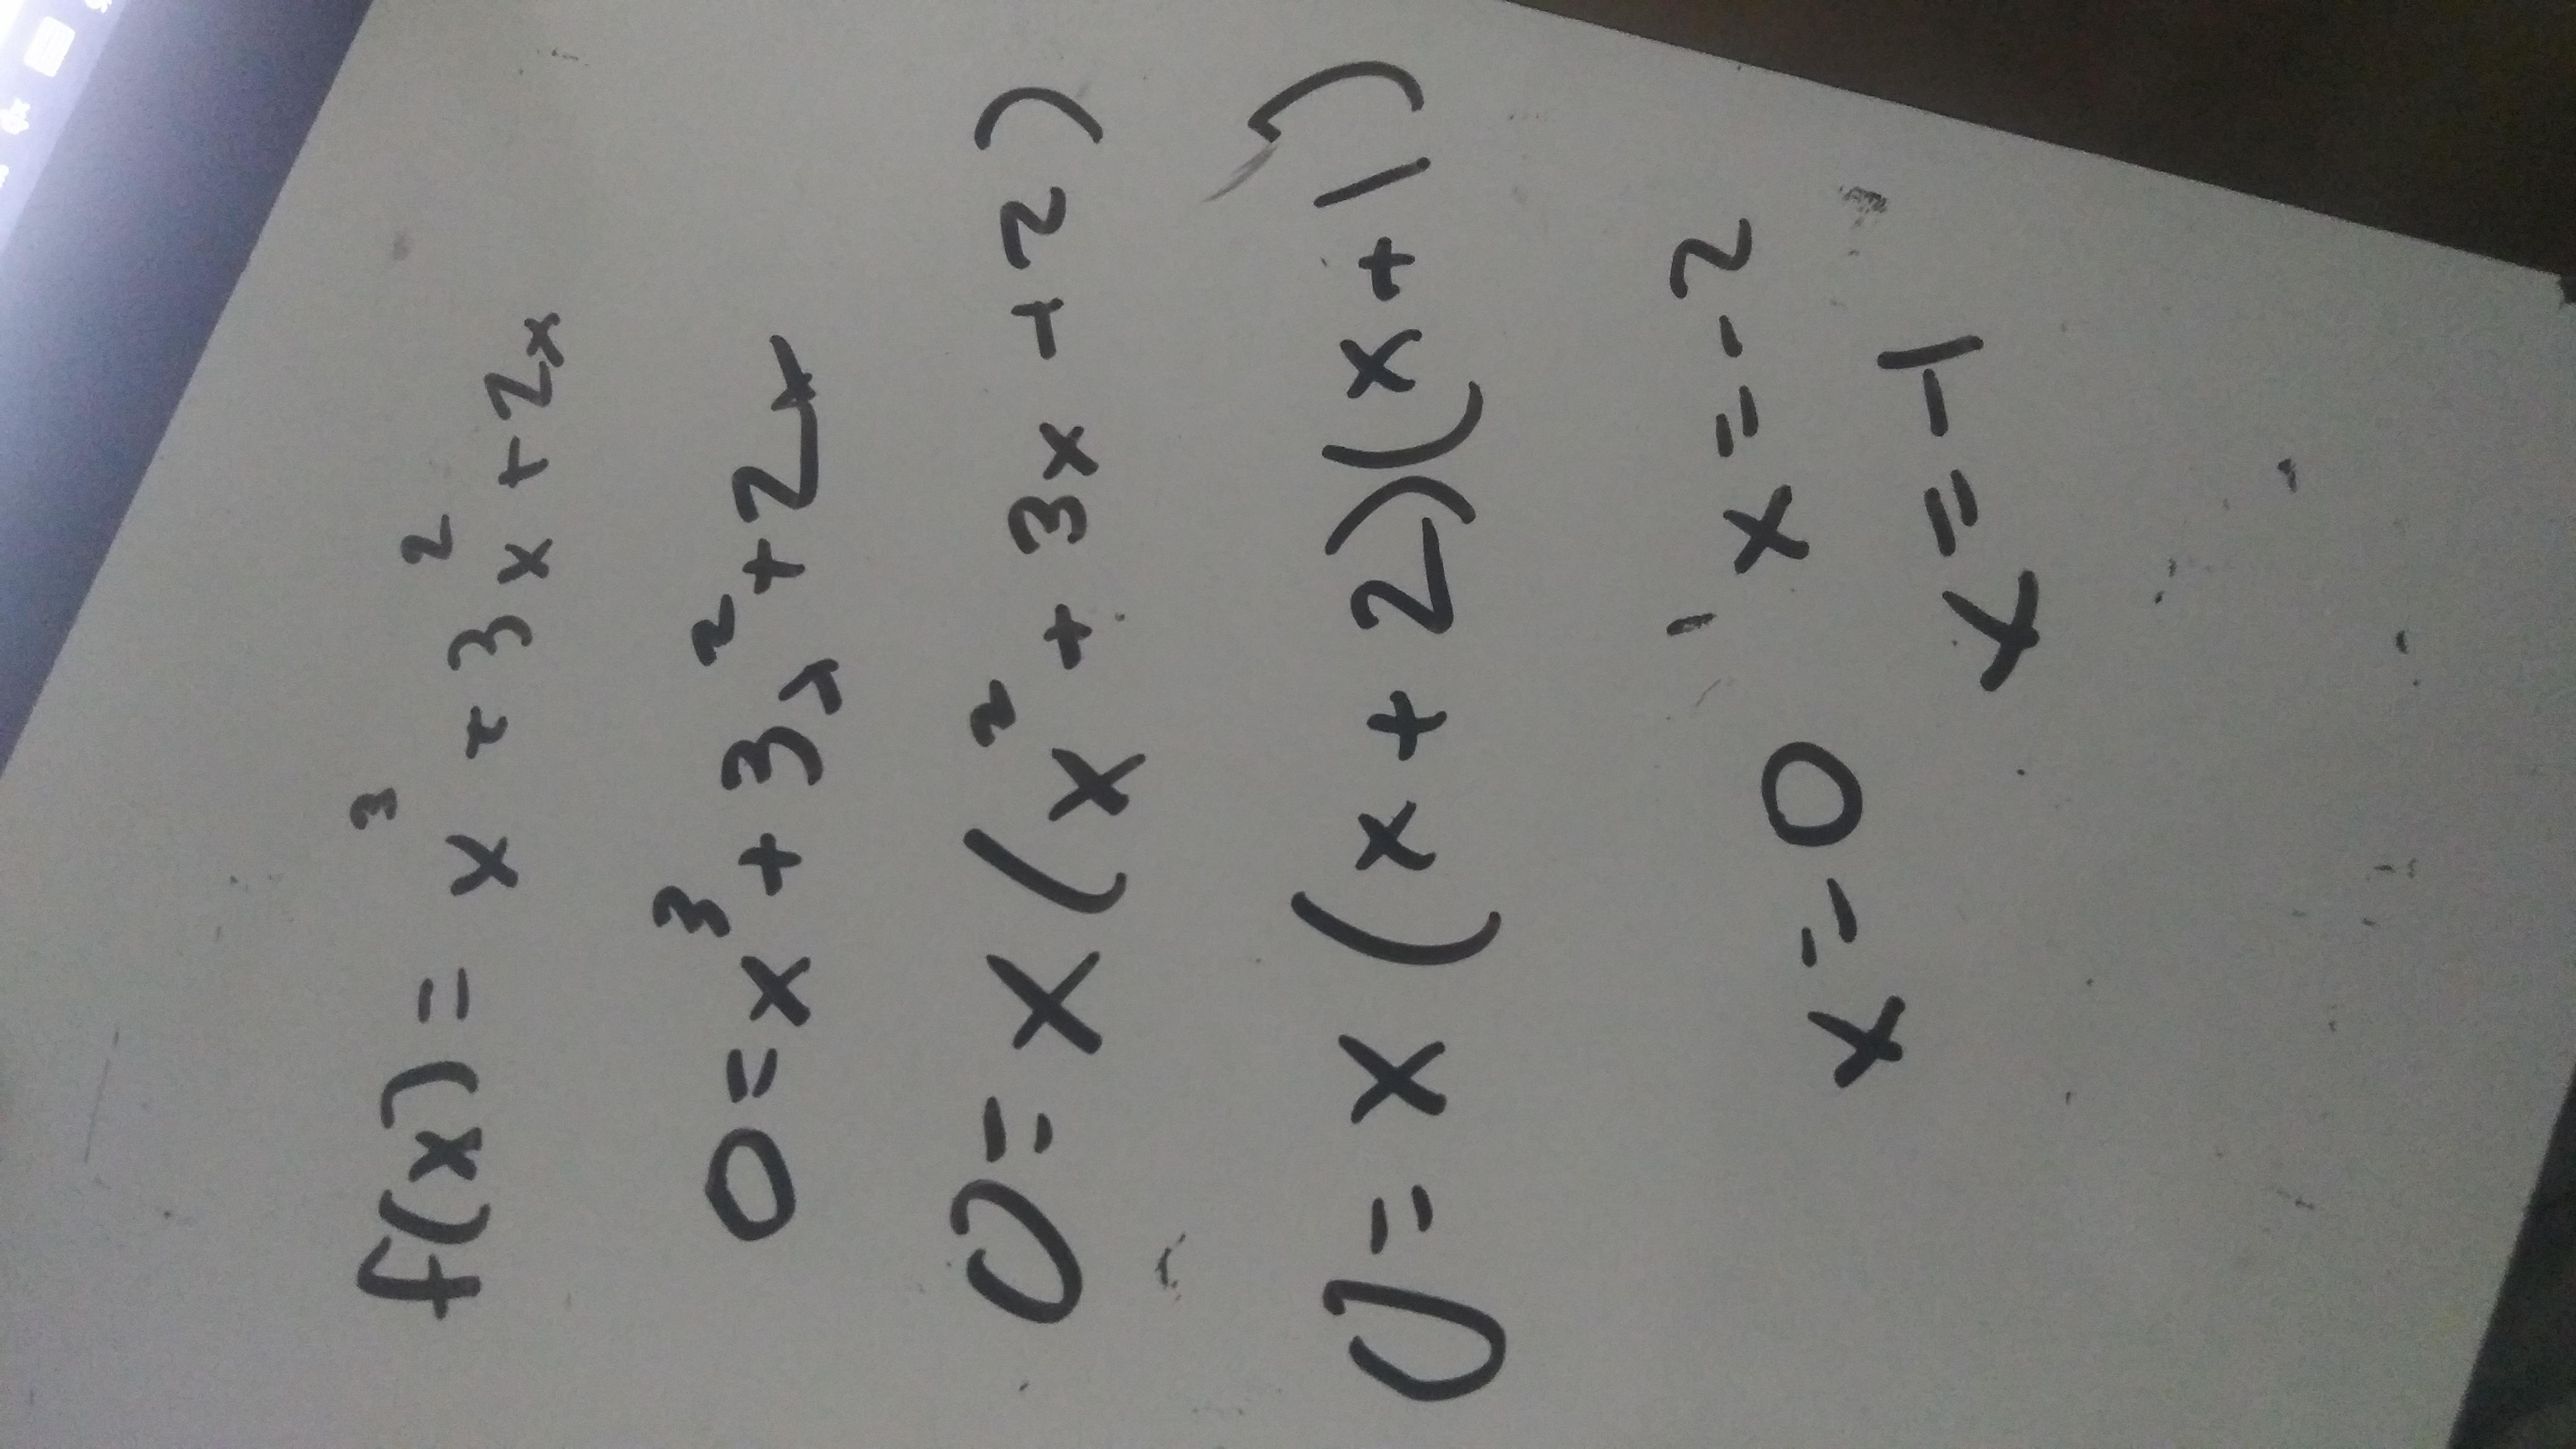 f(x) = x³ + 3x² + 2x
0 = x³ + 3x² + 2x
0 = x(x² + 3x + 2)
0 = x(x + 2)(x + 1)
x = 0 x = -2
x = -1